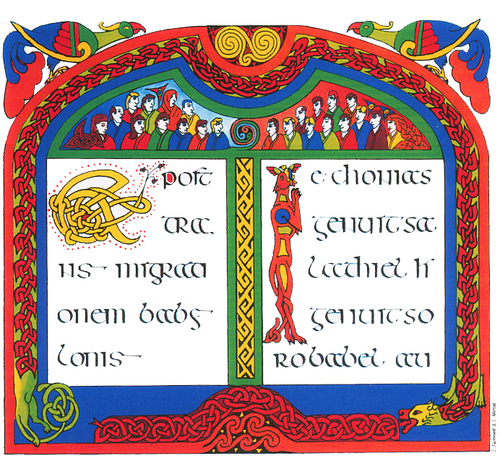 Et post
tra
ns migrati
onem baby
lonis
Iechonias
genuit sa
lathiel
genuit so
robabel au